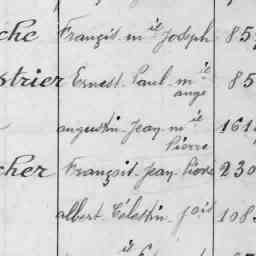 che François m.el Joseph 85
strier Ernest Paul m.el 85
ange
augustin Jean m.el 161
Pierre
cher François Jean Pierre 230
albert Célestin Jois 108